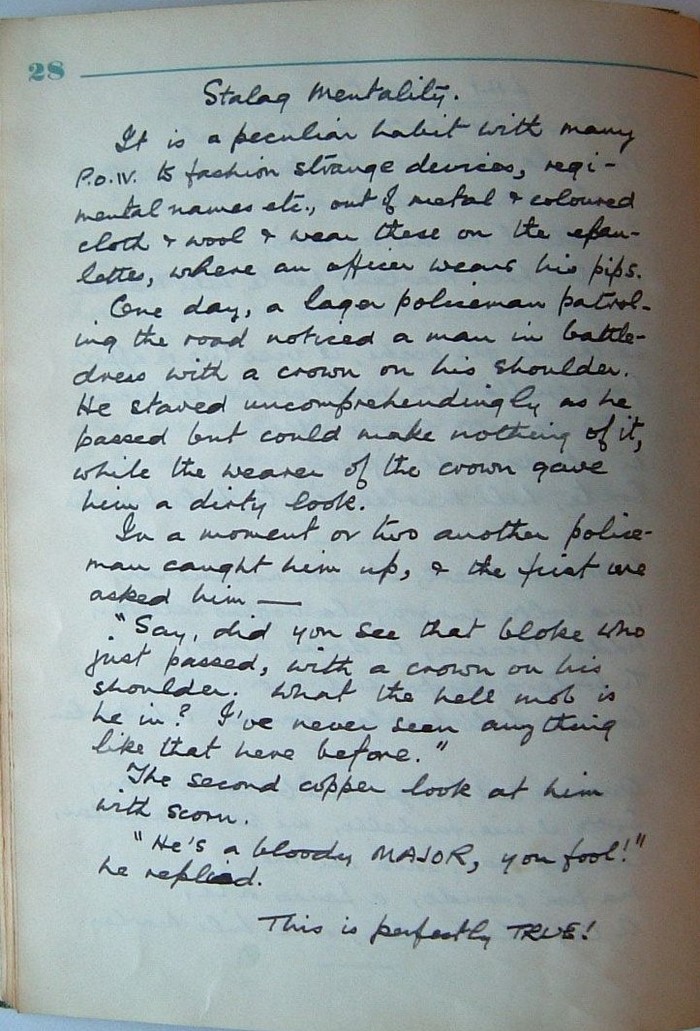 28
Stalag Mentality.
It is a peculiar habit with many
P.o.W. to fashion strange devices, regi-
mental names etc., out of metal & coloured
cloth & wool & wear these on the epau-
lettes, where an officer wears his pips.
One day, a lager policeman patrol-
ing the road noticed a man in battle-
dress with a crown on his shoulder.
He stared uncomprehendingly as he
passed but could make nothing of it,
while the wearer of the crown gave
him a dirty look.
In a moment or two another police-
man caught him up, & the first one
asked him —
"Say, did you see that bloke who
just passed, with a crown on his
shoulder. What the hell mob is
he in? I've never seen anything
like that here before."
The second copper look at him
with scorn.
"He's a bloody MAJOR, you fool!"
he replied.
This is perfectly TRUE!